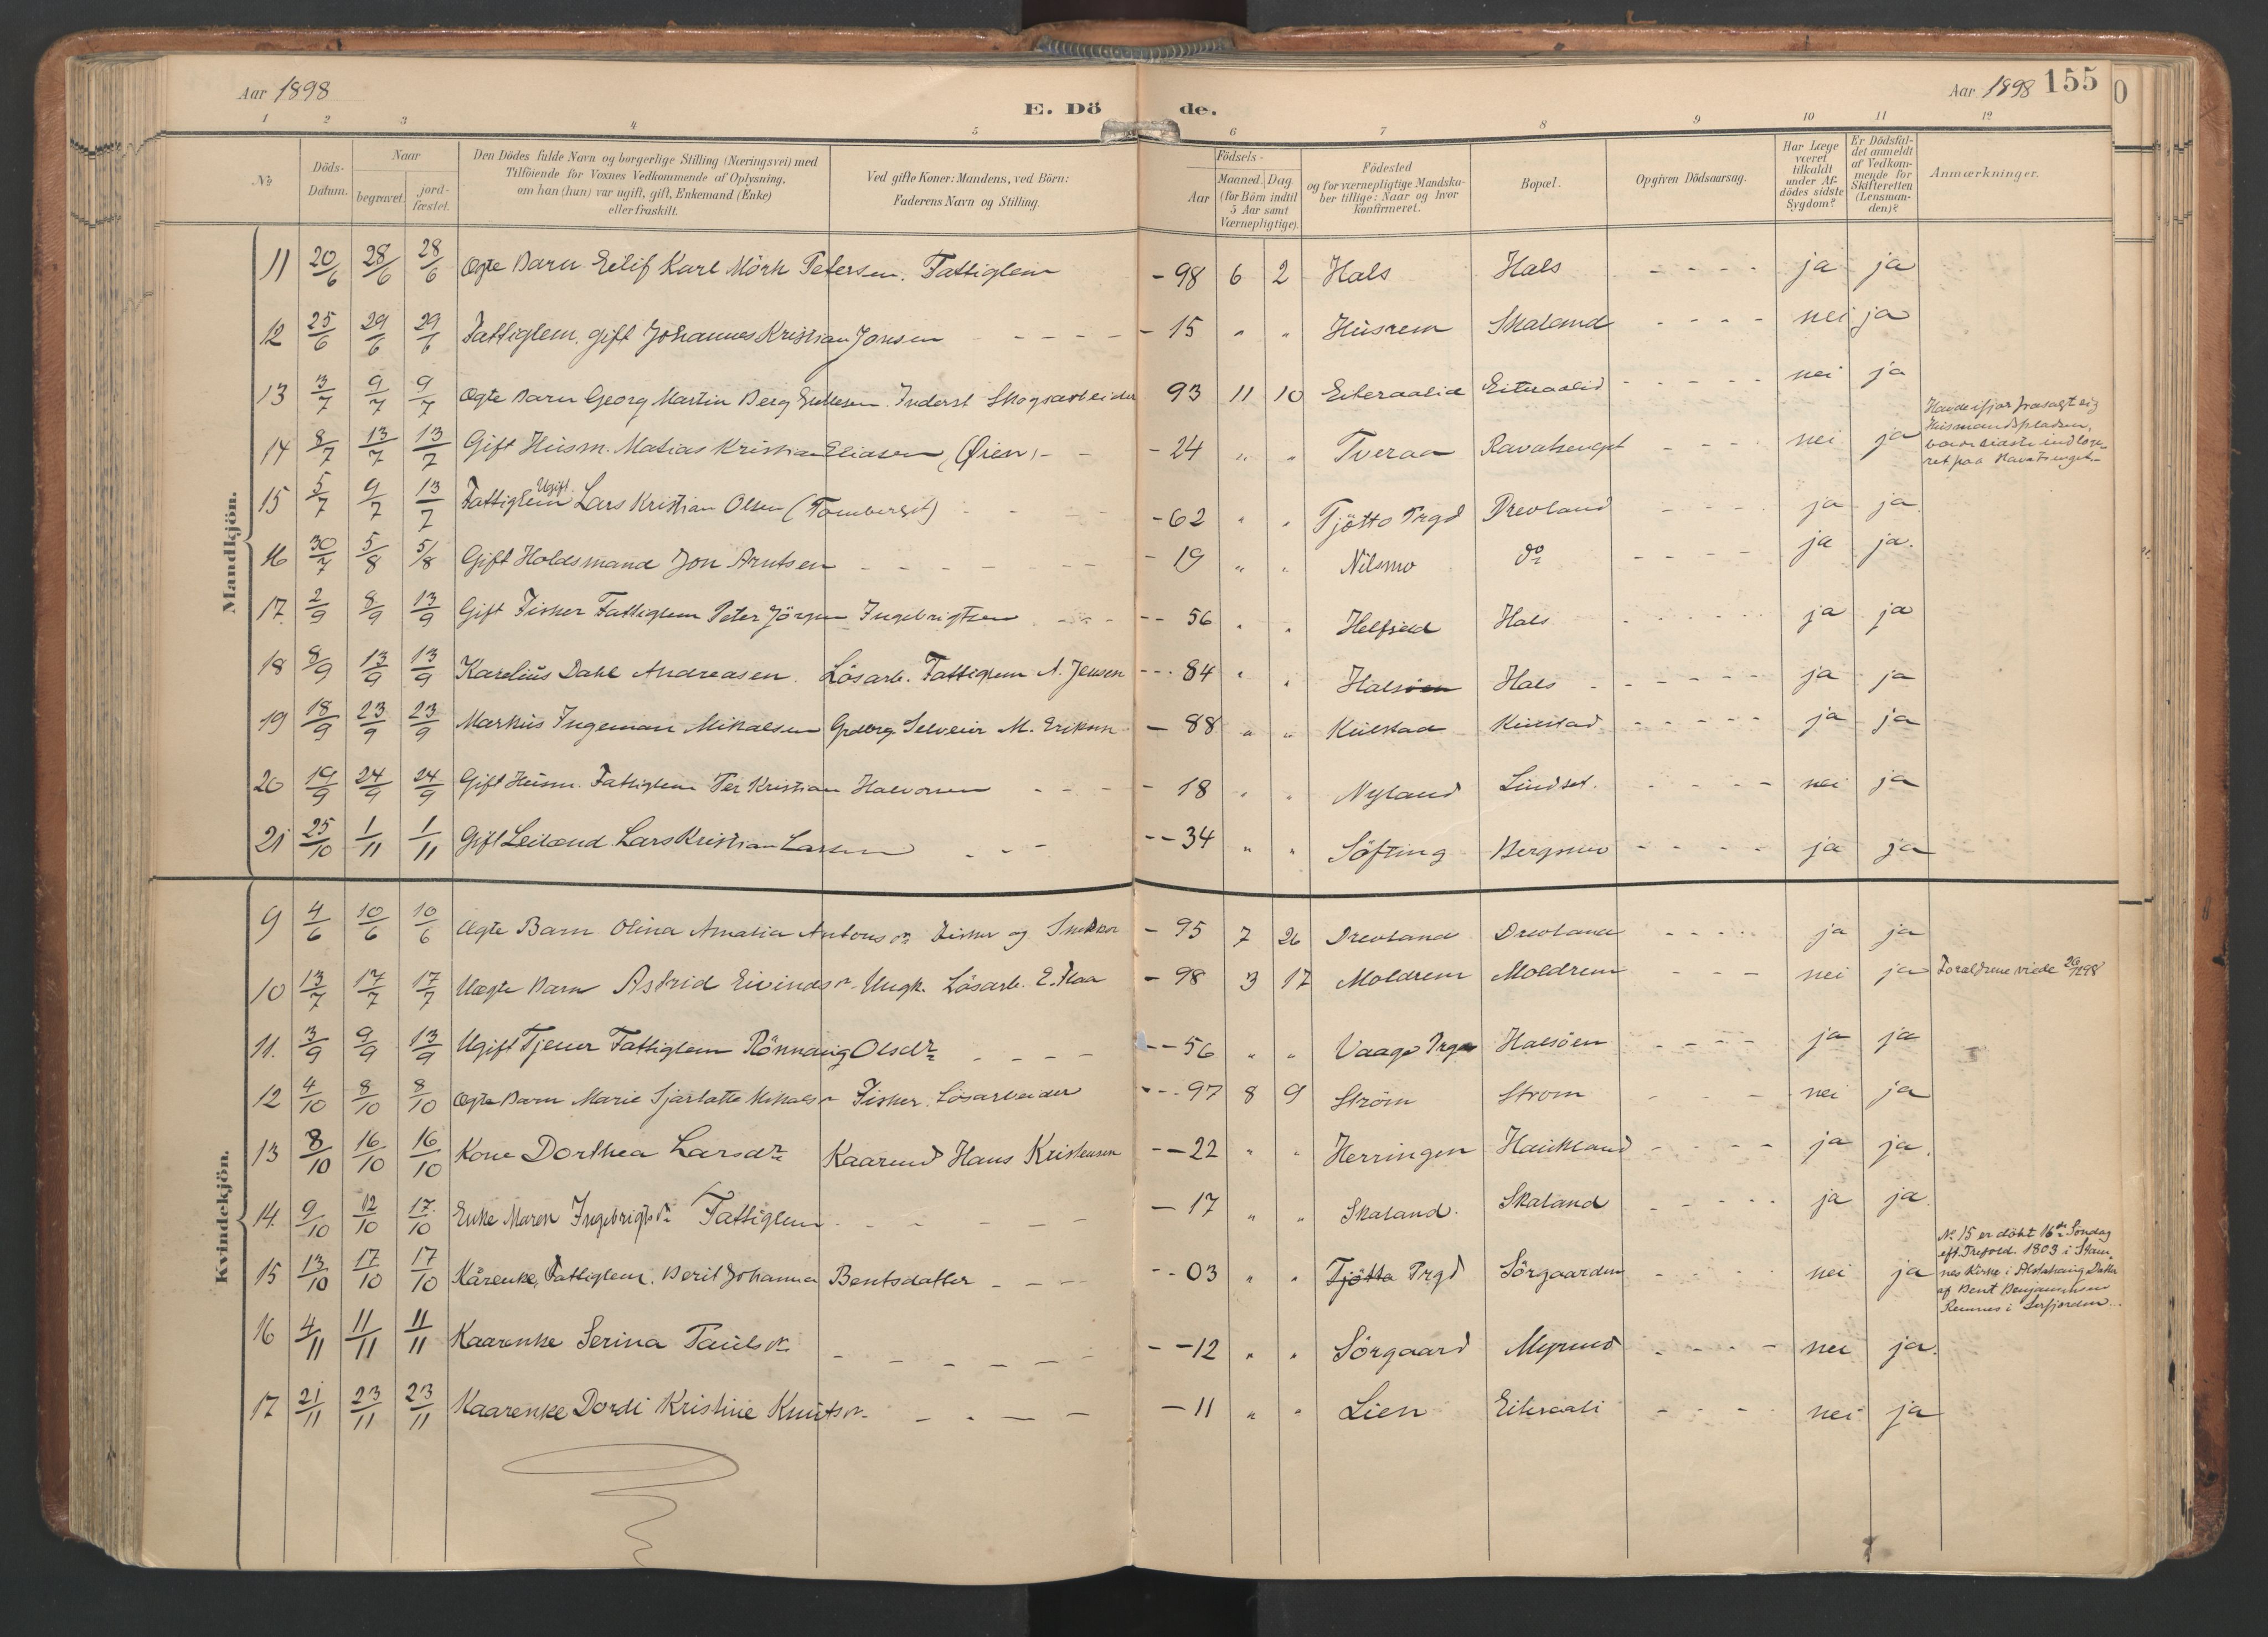 Aar 1898
E. Döde.
Aar 1898 155
1 2 3 4 5 6 7 8 9 10 11 12
No
Döds-Datum.
Naar
begravet.
jord-fæstet.
Den Dödes fulde Navn og borgerlige Stilling (Næringsvei) med
Tilföiende for Voxnes Vedkommende af Oplysning,
om han (hun) var ugift, gift, Enkemand (Enke)
eller fraskilt.
Ved gifte Koner: Mandens, ved Börn:
Faderens Navn og Stilling.
Födsels-
Aar
Maaned. Dag.
(for Börn indtil
5 Aar samt
Værnepligtige)
Födested
og for værnepligtige Mandska-
ber tillige: Naar og hvor
konfirmeret.
Bopæl.
Opgiven Dödsaarsag.
Har Læge
været
tilkaldt
under Af-
dödes sidste
Sygdom?
Er Dödsfal-
det anmeldt
af Vedkom-
mende for
Skifteretten
(Lensman-
den)?
Anmærkninger.
Mandkjön.
11 20/6 28/6 28/6 Ægte Barn Eilif Karl Mörk Petersen. Fattiglem - 98 6 2 Hals Hals - - - - ja ja
12 25/6 29/6 29/6 Fattiglem, gift Johannes Kristian Jonsen - - - - 15 " " Husrem Skaland - - - - nei ja
13 3/7 9/7 9/7 Ægte Barn Georg Martin Berg Inderst Skogsarbeider 93 11 10 Eiteraalid Eiteraalid - - - - nei ja
14 8/7 13/7 13/7 Gift Husm. Matias Kristian Eliasen, (Öien) - - - 24 " " Tveraa - - - nei ja
Husmandspladsen,
15 5/7 9/7 13/7 Fattiglem Ugift Lars Kristian Olsen - 62 " " Tjötto Prgd Drevland - - - - ja ja
16 30/7 5/8 5/8 Gift Holdsmand Jon Arntsen - - - - 19 " " Nilsmo do - - - - ja ja.
17 2/9 8/9 13/9 Gift Fisker Fattiglem Peter Jörgen Ingebrigtsen - - - 56 " " Helfjeld Hals - - - - ja ja
18 8/9 13/9 13/9 Karelius Dahl Andreasen. Lösarb. Fattiglem A. Jensen - - - 84 " " Halsöen Hals - - - - ja ja
19 18/9 23/9 23/9 Markus Ingeman Mikalsen Selveier M. Eriksen - 88 " " Kulstad Kulstad - - - - ja ja
20 19/9 24/9 24/9 Gift Husm. Fattiglem Per Kristian Halvorsen - - - 18 " " Nyland Lindset. - - - - nei ja
21 25/10 1/11 1/11 Gift Leilænd. Lars Kristian Larsen - - - - - 34 " " Söfting Bergsmo - - - - ja ja
Kvindekjön.
9 4/6 10/6 10/6 Ægte Barn Olina Amalia Antonsdr. Fisker og Snekker - 95 7 26 Drevland Drevland - - - - ja ja
10 13/7 17/7 17/7 Uægte Barn Astrid Eivindsdr. Ungk. Lösarb. E. Haa - 98 3 17 Moldrem Moldrem - - - nei ja Foraldrene viede
11. 3/9 9/9 13/9 Ugift Tjener Fattiglem Rönnaug Olsdr - - - - - - 56 " " Vaagø Halsöen - - - - ja ja
12 4/10 8/10 8/10 Ægte Barn Marie Sjarlotte Mikalsdr Fisker. Lösarbeider - - - 97 8 9 Ström Strom - - - nei ja
13 8/10 16/10 16/10 Kone Dorthea Larsdr Kaarmd Hans Kristensen - - 22 " " Herringen Haukland - - - - ja ja.
14. 9/10 12/10 17/10 Enke Maren Ingebrigtsdr Fattiglem - - - - - 17 " " Skaland. Skaland - - - - ja ja.
15 13/10 17/10 17/10 Kårenke, Fattiglem. Berit Johanna Bentsdatter - - - - - 03 " " Tjötta Prgd Sörgaarden - - - - nei ja
No 15 er döbt 16de Söndag
eft. Trefold. 1803 i Stam-
nes Kirke i Alstahaug Datter
af Bent Benjaminsen
16 4/11 11/11 11/11 Kaarenke Serina Paulsdr - - - - - - - 12 " " Sörgaard - - - - nei ja.
17 21/11 23/11 23/11 Kaarenke Dordi Kristine Knutsdr. - - - - - 11 " " Lien Eiteraali - - - - nei ja